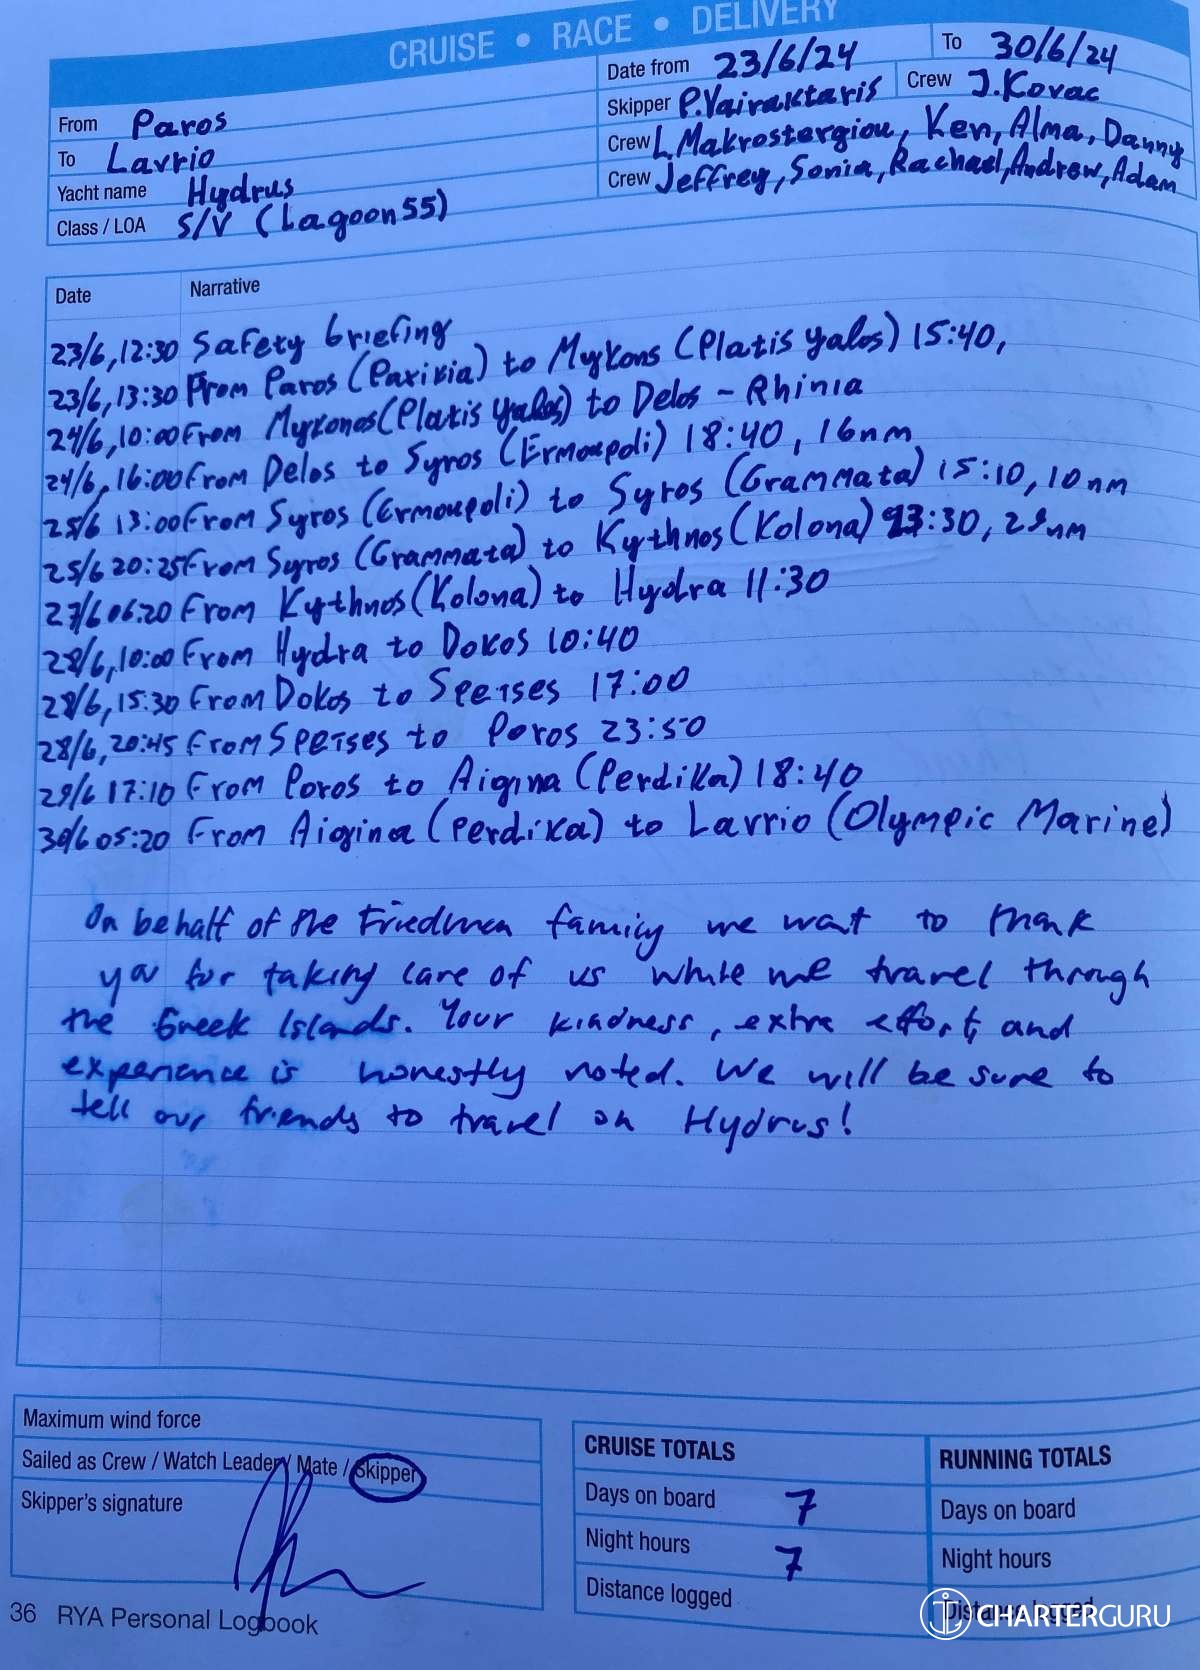 CRUISE • RACE • DELIVERY
From Paros
To Lavrio
Yacht name Hydrus
Class / LOA S/V (Lagoon 55)
Date from 23/6/24 To 30/6/24
Skipper P.Vairaktaris Crew J.Kovac
Crew L.Makrostergiou, Ken, Alma, Danny
Crew Jeffrey, Sonia, Rachael, Andrew, Adam
Date Narrative
23/6, 12:30 Safety briefing
23/6, 13:30 From Paros (Parikia) to Mykons (Platis yalos) 15:40,
24/6, 10:00 From Mykonos (Platis yalos) to Delos - Rhinia
24/6, 16:00 From Delos to Syros (Ermoupoli) 18:40, 16nm
25/6 13:00 From Syros (Ermoupoli) to Syros (Grammata) 15:10, 10nm
25/6 20:25 From Syros (Grammata) to Kythnos (Kolona) 23:30, 29nm
27/6 06:20 From Kythnos (Kolona) to Hydra 11:30
28/6, 10:00 From Hydra to Dokos 10:40
28/6, 15:30 From Dokos to Spetses 17:00
28/6, 20:45 From Spetses to Poros 23:50
29/6 17:10 From Poros to Aigina (Perdika) 18:40
30/6 05:20 From Aigina (Perdika) to Lavrio (Olympic Marine)
On behalf of the Friedman family we want to thank
you for taking care of us while we travel through
the Greek Islands. Your kindness, extra effort, and
experience is honestly noted. We will be sure to
tell our friends to travel on Hydrus!
Maximum wind force
Sailed as Crew / Watch Leader / Mate / Skipper
Skipper's signature
CRUISE TOTALS
Days on board 7
Night hours 7
Distance logged
RUNNING TOTALS
Days on board
Night hours
Distance logged
36 RYA Personal Logbook
CHARTERGURU